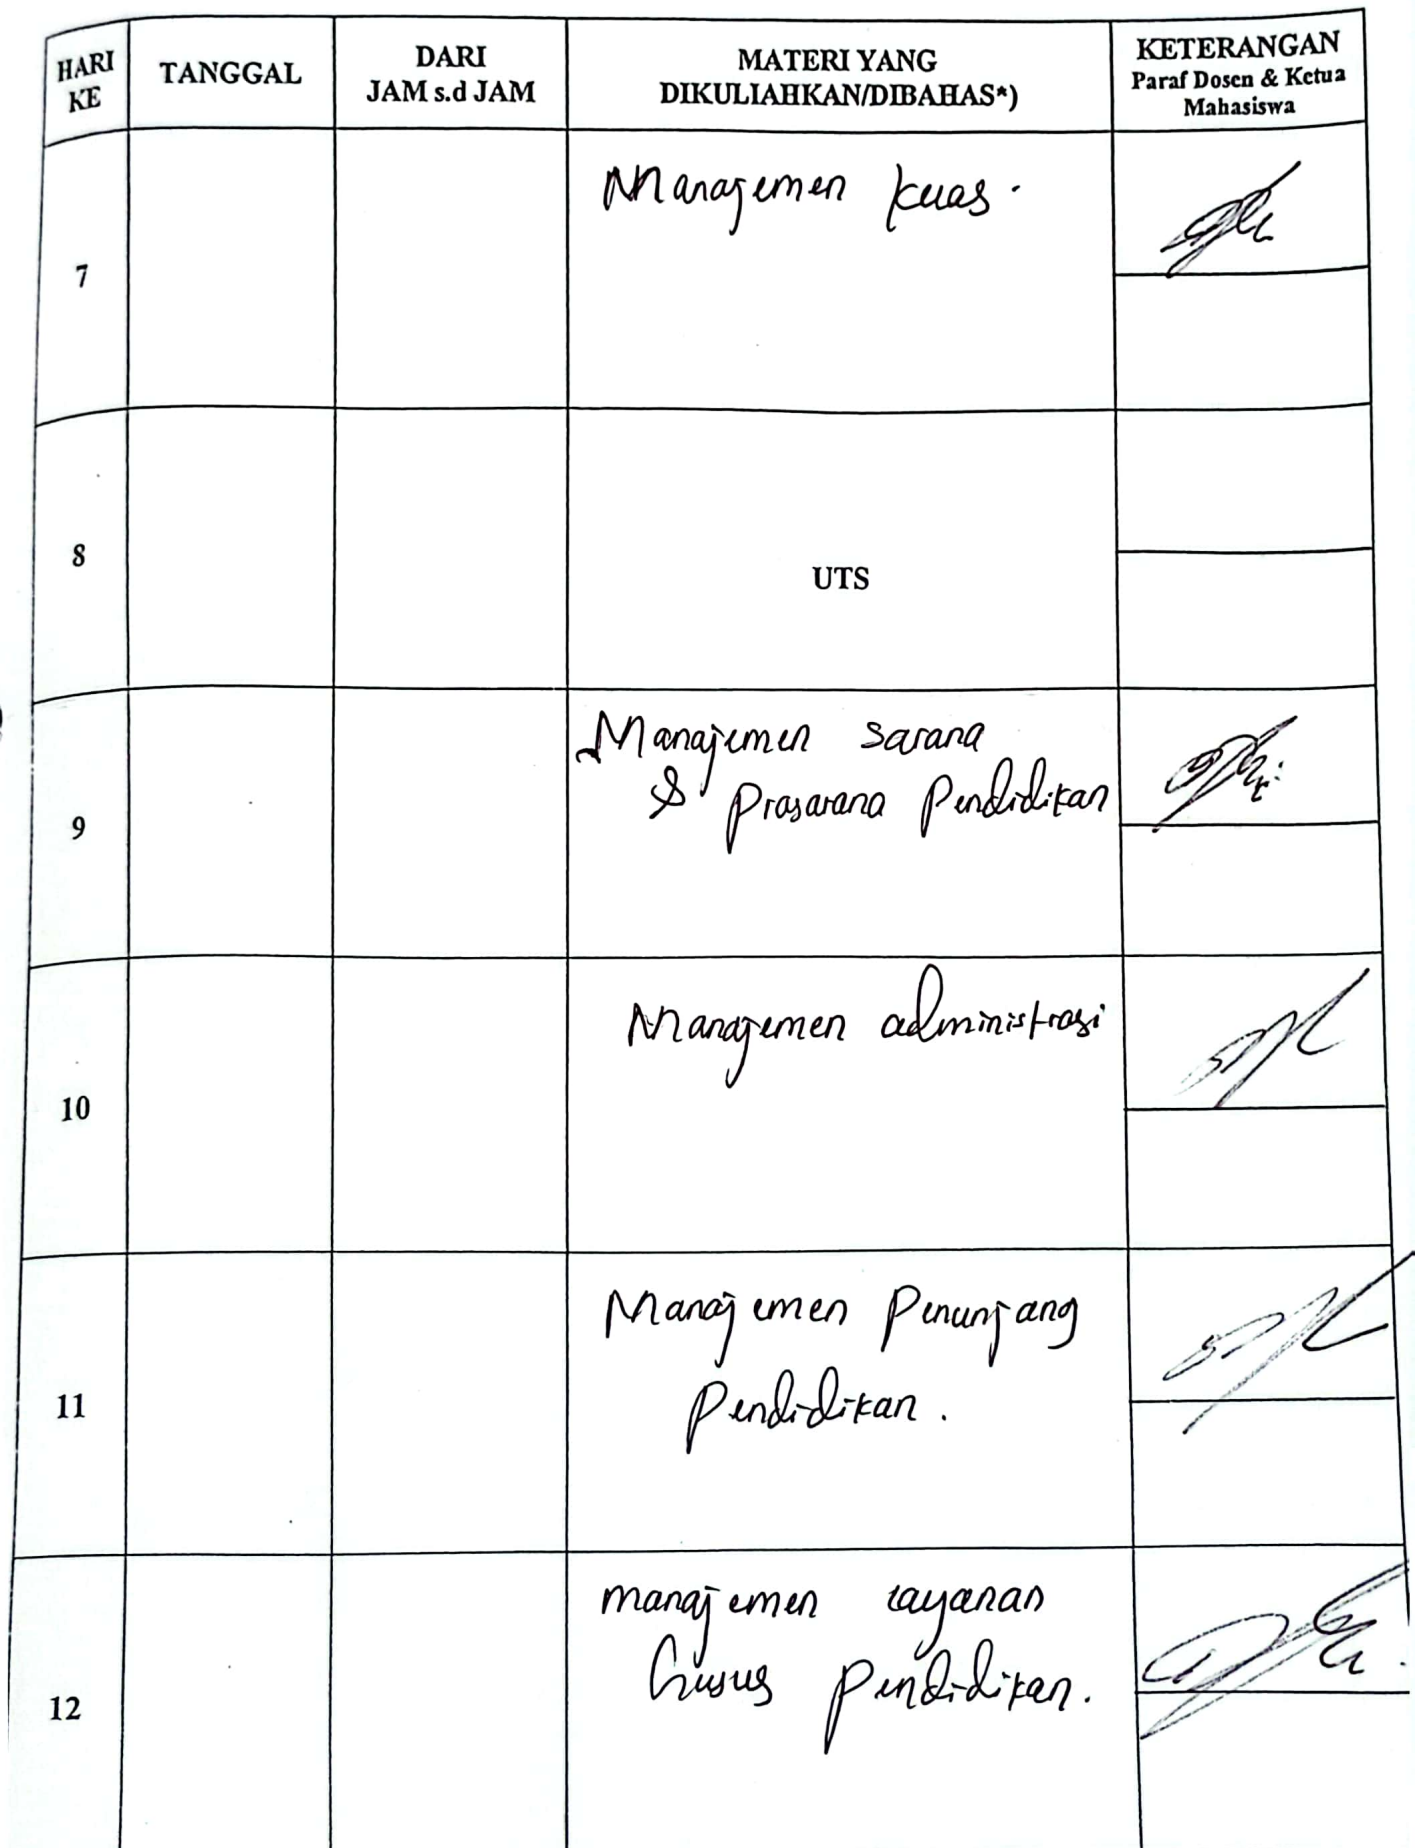 HARI KE
TANGGAL
DARI
JAM s.d JAM
MATERI YANG
DIKULIAHKAN/DIBAHAS*)
KETERANGAN
Paraf Dosen & Ketua
Mahasiswa
7
Manajemen kuas.
8
UTS
9
Manajemen sarana
& Prasarana Pendidikan
10
Manajemen administrasi
11
Manajemen Penunjang
Pendidikan.
12
manajemen layanan
husus Pendidikan.